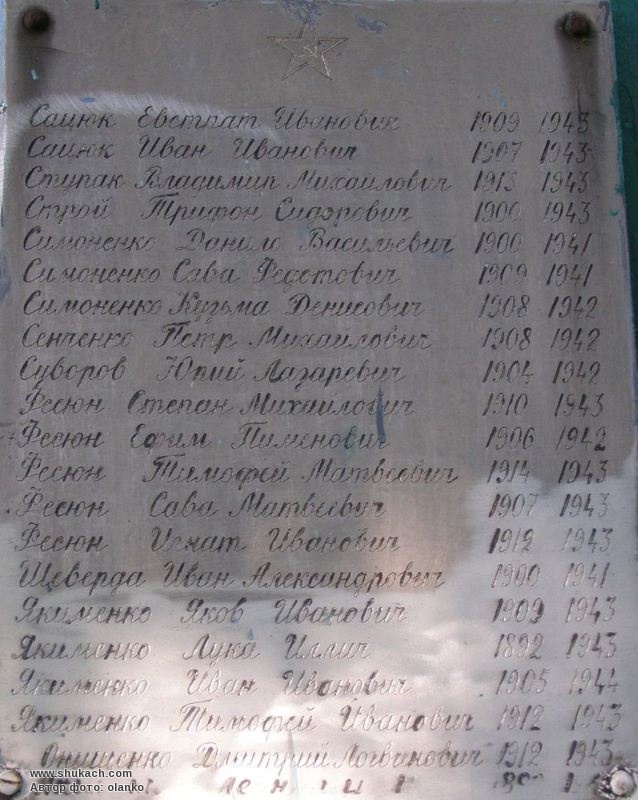 Сацюк Евстрат Иванович 1909 1943
Сацюк Иван Иванович 1907 1943
Ступак Владимир Михайлович 1913 1943
Строй Трифон Сидорович 1900 1943
Симоненко Данило Васильевич 1900 1941
Симоненко Сава Федетович 1909 1941
Симоненко Кузьма Денисович 1908 1942
Сенченко Петр Михайлович 1908 1942
Суворов Юрий Лазаревич 1904 1942
Фесюн Степан Михайлович 1910 1943
Фесюн Ефим Пименович 1906 1942
Фесюн Тимофей Матвеевич 1914 1943
Фесюн Сава Матвеевич 1907 1943
Фесюн Игнат Иванович 1912 1943
Шеверда Иван Александрович 1900 1941
Якименко Яков Иванович 1909 1943
Якименко Лука Иллич 1892 1943
Якименко Иван Иванович 1905 1944
Якименко Тимофей Иванович 1912 1943
Онищенко Дмитрий Логванович 1912 1943
www.shukach.com
Автор фото: olanko